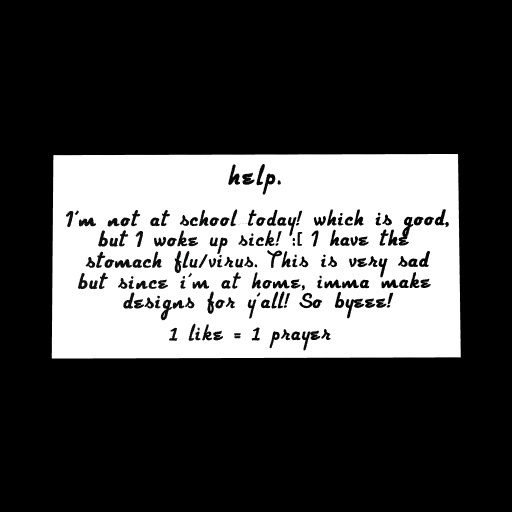 help.
I'm not at school today! which is good,
but I woke up sick! :[ I have the
stomach flu/virus. This is very sad
but since i'm at home, imma make
designs for y'all! So byeee!
1 like = 1 prayer